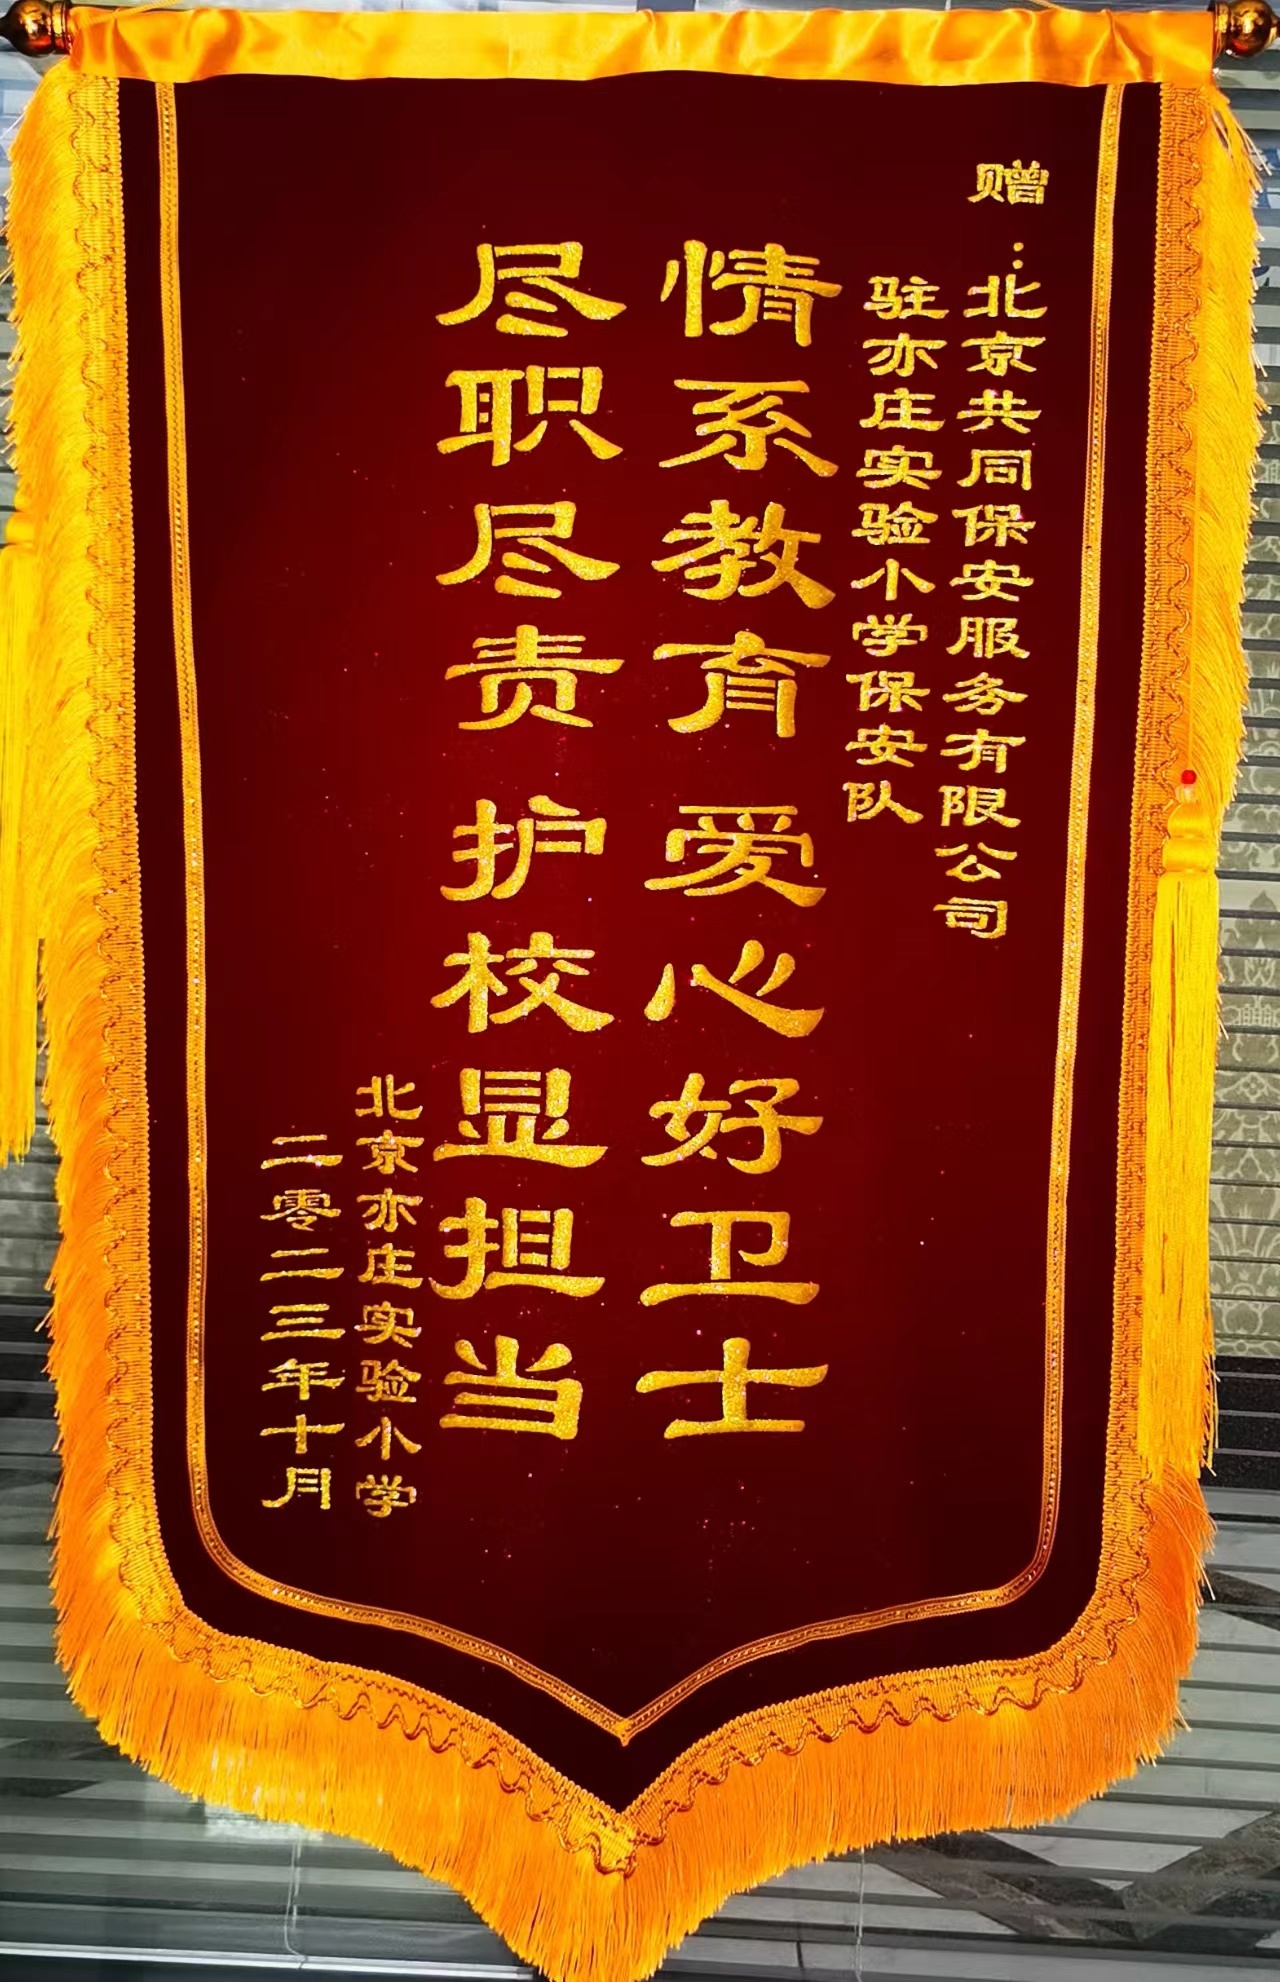 赠：北京共同保安服务有限公司
驻亦庄实验小学保安队
情系教育 爱心好卫士
尽职尽责 护校显担当
北京亦庄实验小学
二零二三年十月